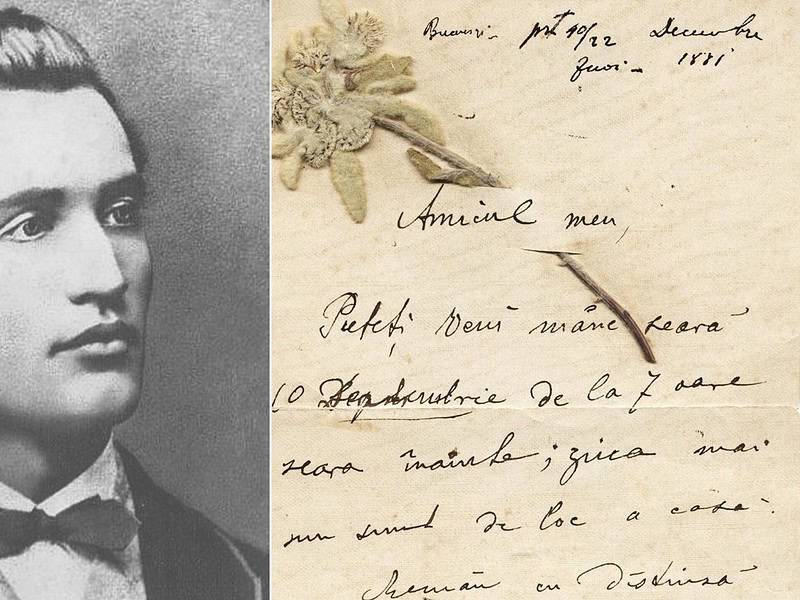 10/22 Decembre
1881
Amicul meu,
Puteți veni mâne seară
10 de la 7 oare
seara înainte; ziua mai
nu sunt de loc a casă.
Remân cu distinsă